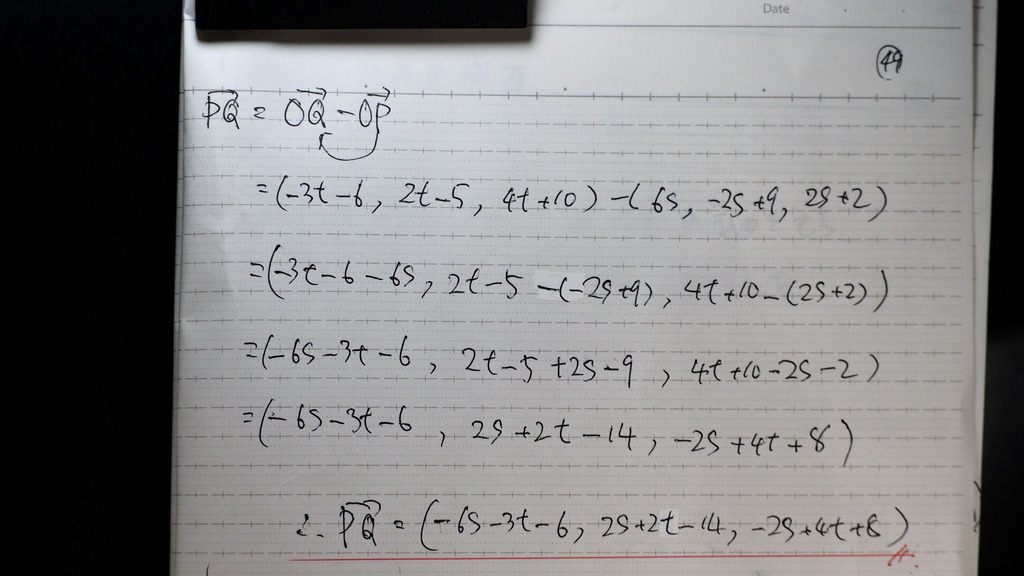 Date
㊾
$\overrightarrow{PQ} = \overrightarrow{OQ} - \overrightarrow{OP}$
=(-3t-6, 2t-5, 4t+10)-(6s, -2s+9, 2s+2)
=(-3t-6-6s, 2t-5-(-2s+9), 4t+10-(2s+2))
=(-6s-3t-6, 2t-5+2s-9, 4t+10-2s-2)
=(-6s-3t-6, 2s+2t-14, -2s+4t+8)
∴ $\overrightarrow{PQ}$ = (-6s-3t-6, 2s+2t-14, -2s+4t+8)